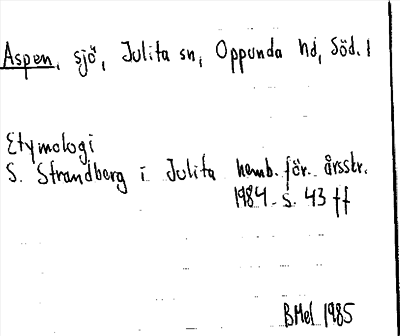 Aspen, sjö, Julita sn, Oppunda hd, Söd. l
Etymologi
S. Strandberg i Julita hemb. för. årsskr.
1984 s. 43 ff
BMel 1985